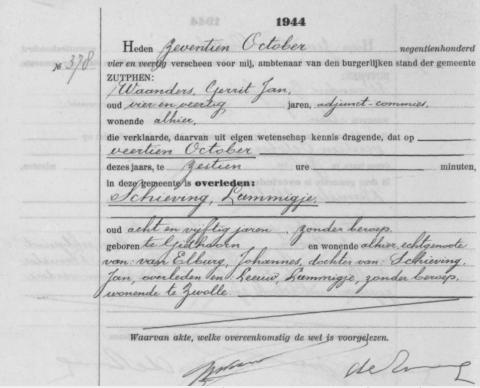 1944
Heden zeventien October negentienhonderd
№ 378 vier en veertig verscheen voor mij, ambtenaar van den burgerlijken stand der gemeente
ZUTPHEN:
Waanders, Gerrit Jan,
oud vier en veertig jaren, adjunct-commies,
wonende alhier,
die verklaarde, daarvan uit eigen wetenschap kennis dragende, dat op
veertien October
dezes jaars, te zestien ure minuten,
in deze gemeente is overleden:
Schieving, Lammigje,
oud acht en vijftig jaren, zonder beroep,
geboren te Giethoorn en wonende alhier, echtgenote
van: van Elburg, Johannes, dochter van: Schieving,
Jan, overleden en Lammigje, zonder beroep,
wonende te Zwolle.
Waarvan akte, welke overeenkomstig de wet is voorgelezen.